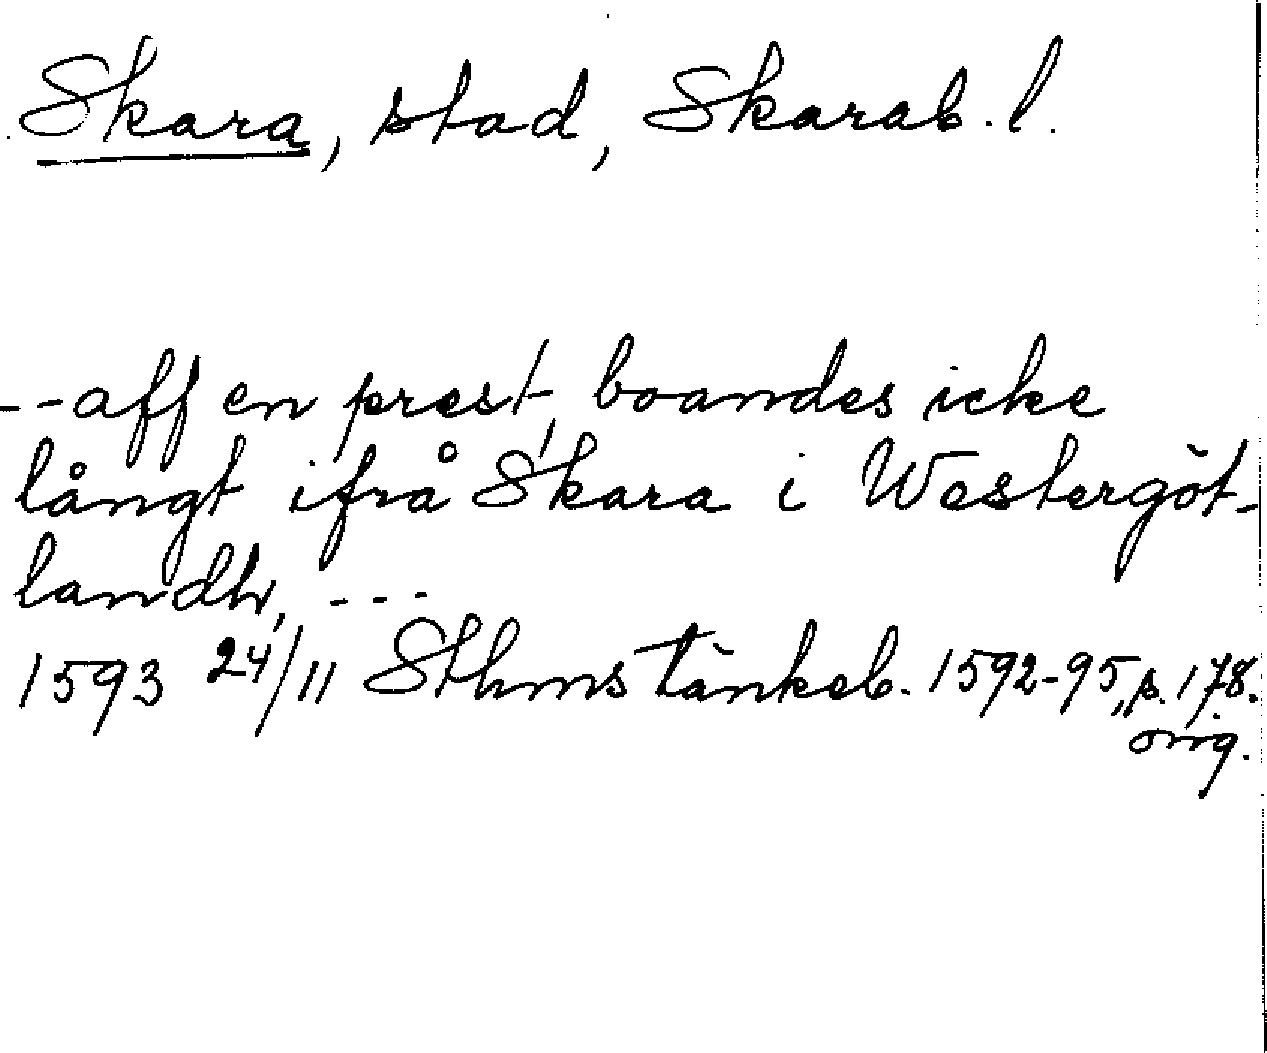 Skara, stad, Skarab. l.
--aff en prest, boandes icke
långt ifrå Skara i Westergöt-
landh, ---
1593 24/11 Sthms tänkeb. 1592-95, s. 178.
orig.